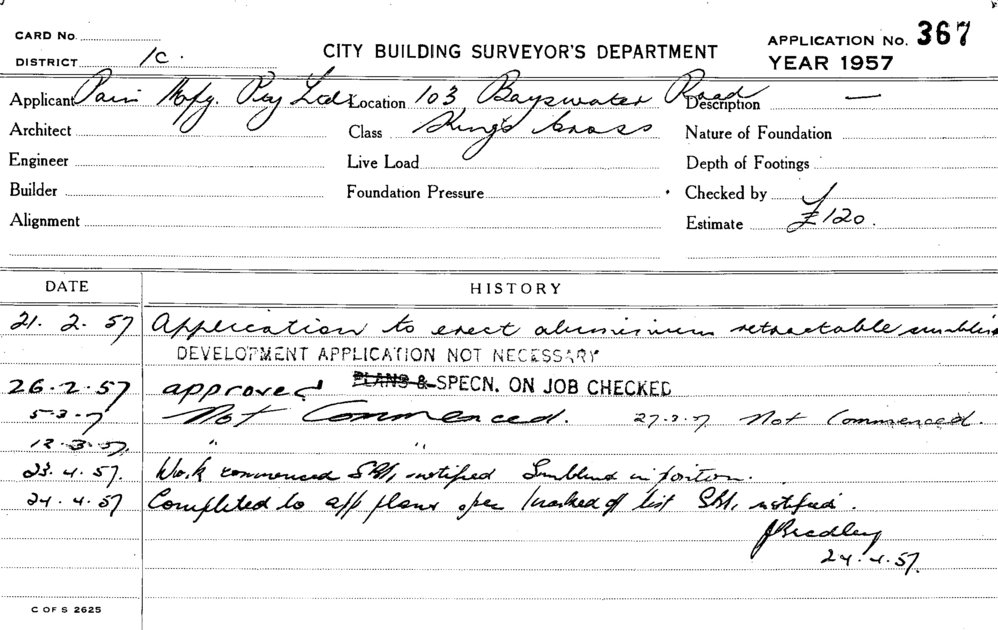 CARD No.
DISTRICT 1C.
CITY BUILDING SURVEYOR'S DEPARTMENT
APPLICATION No. 367
YEAR 1957
Applicant Mofg. Pty Ltd Location 103 Bayswater Road Description —
Architect Class Kings Cross Nature of Foundation
Engineer Live Load Depth of Footings
Builder Foundation Pressure Checked by
Alignment Estimate £120.
DATE HISTORY
21. 2. 57 Application to erect aluminium retractable sunblind
DEVELOPMENT APPLICATION NOT NECESSARY
26.2.57 approved PLANS & SPECN. ON JOB CHECKED
5-3-7 Not Commenced. 27.3.7 Not Commenced.
12.3.57. " "
23.4.57. Work commenced notified Sunblind in position.
24.4.57 Completed to app plans spec marked of list notified.
J Bradley
24.4.57.
C OF S 2625